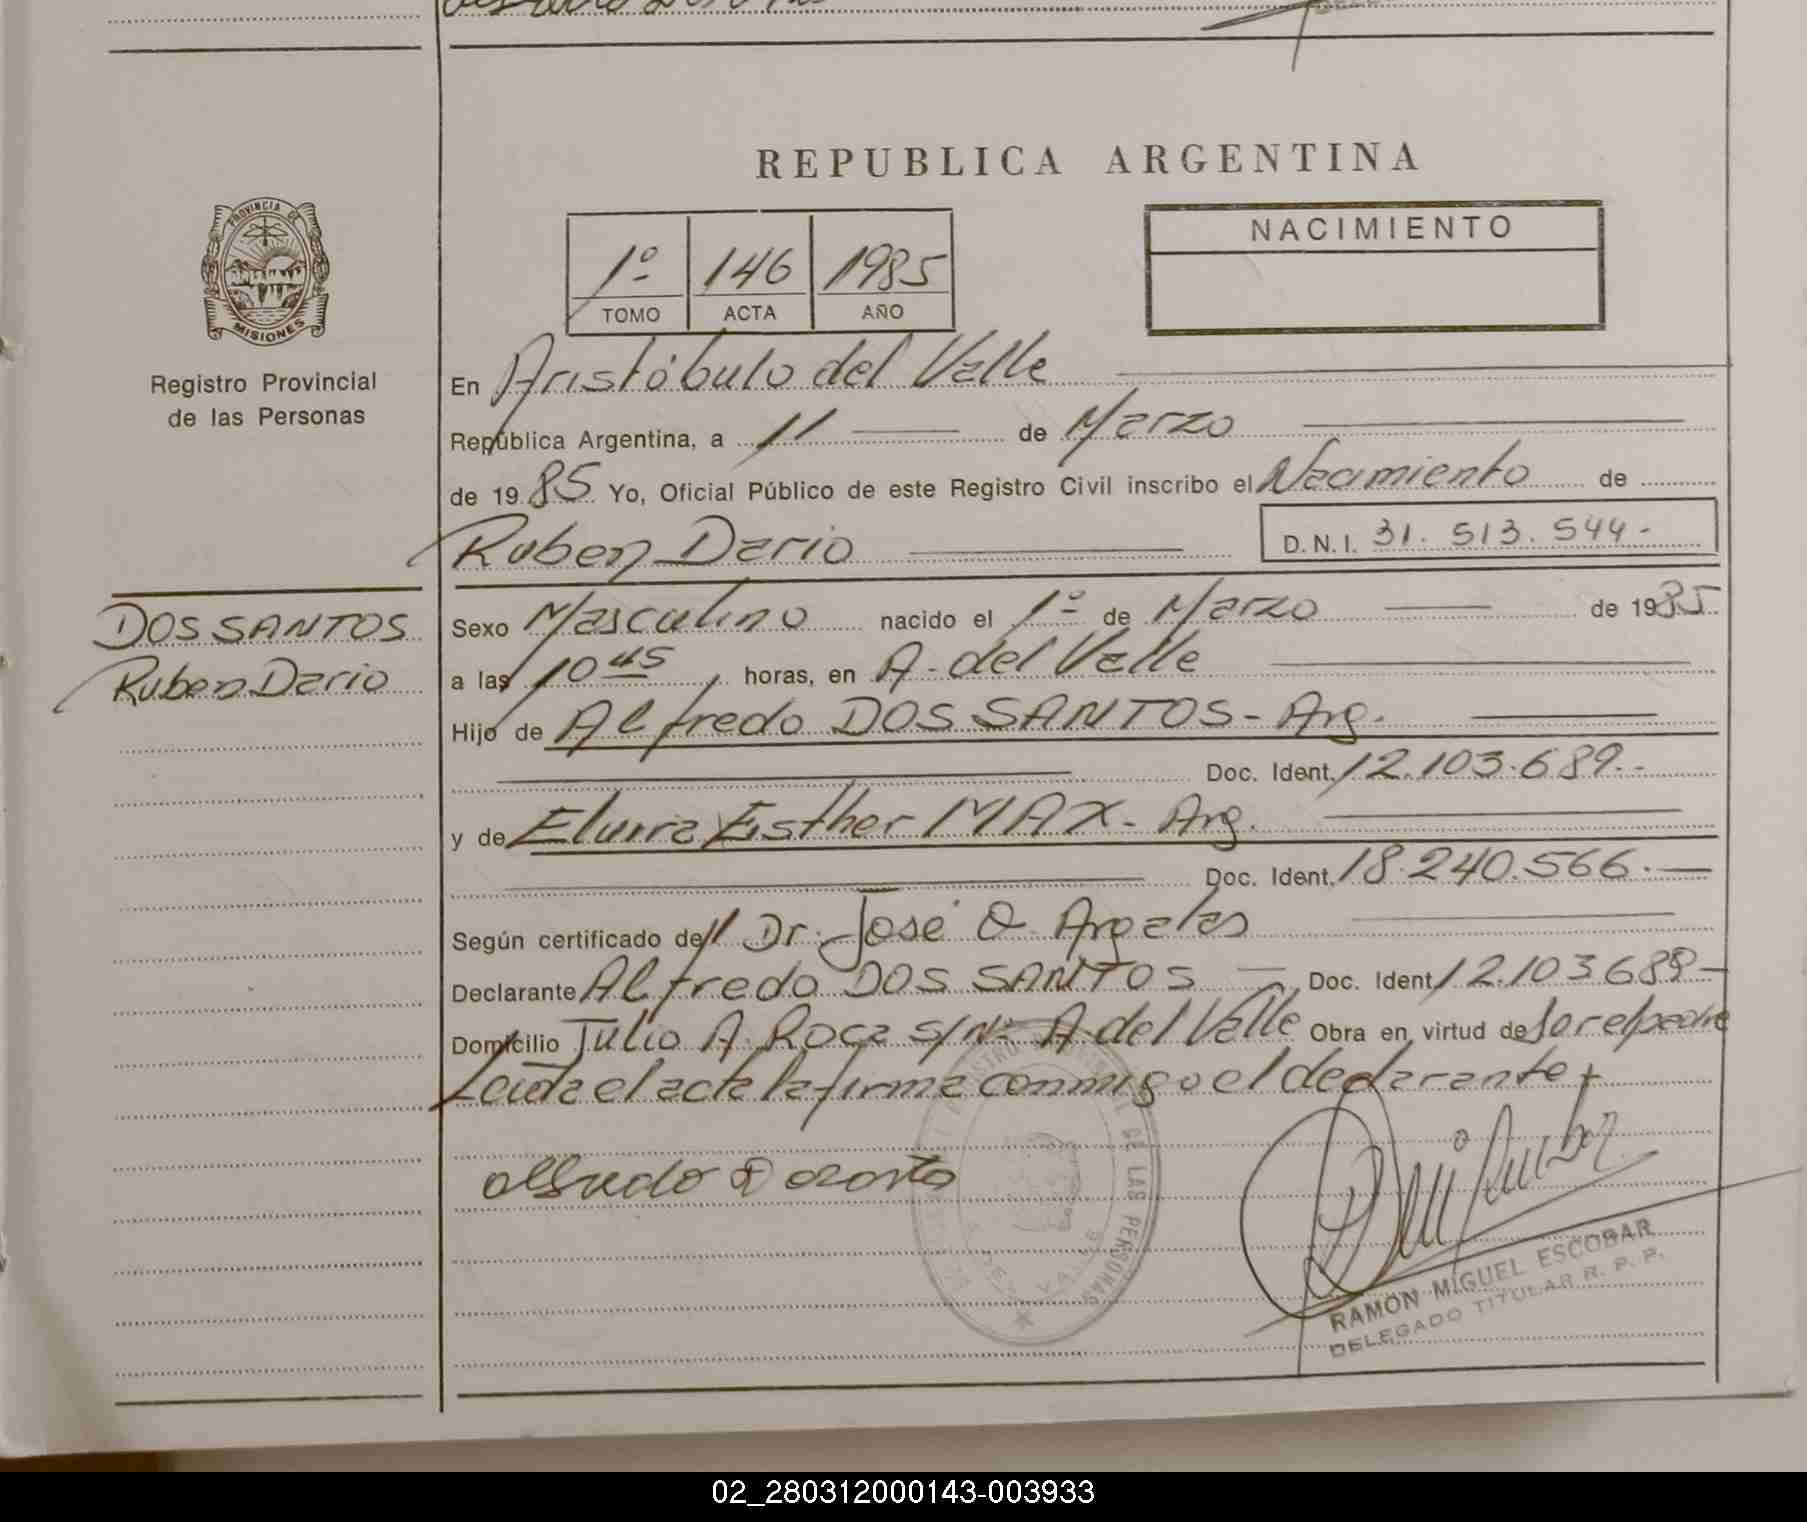 REPUBLICA ARGENTINA
PROVINCIA DE
MISIONES
Registro Provincial
de las Personas
1º 146 1985
TOMO ACTA AÑO
NACIMIENTO
En Aristóbulo del Valle
República Argentina, a 11 de Marzo
de 1985 Yo, Oficial Público de este Registro Civil inscribo el Nacimiento de
Ruben Dario D.N.I. 31.513.544.-
DOS SANTOS
Ruben Dario
Sexo Masculino nacido el 1º de Marzo de 1985
a las 10 45 horas, en A. del Valle
Hijo de Alfredo DOS SANTOS - Arg.
Doc. Ident. 12.103.689.-
y de Elvira Esther MAX - Arg.
Doc. Ident. 18.240.566.-
Según certificado del Dr. José O. Argalas
Declarante Alfredo DOS SANTOS - Doc. Ident. 12.103.689-
Domicilio Julio A. Roca s/Nº A del Valle Obra en virtud de Ser el padre
Leida el acta la firma conmigo el declarante
DE LAS PERSONAS
RAMON MIGUEL ESCOBAR
DELEGADO TITULAR R. P. P.
02_280312000143-003933